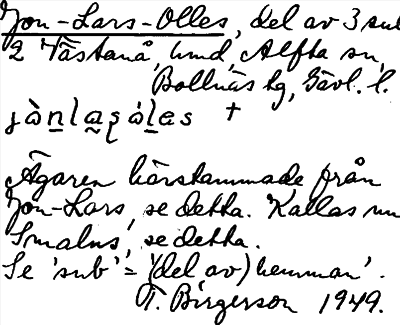 Jon-Lars-Olles, del av 3 sub
2 Västanå, und, Alfta sn,
Bollnäs tg, Gävl. l.
†
Ägaren härstammade från
Jon-Lars, se detta. Kallas nu
Smalus, se detta.
Se 'sub' = '(del av) hemman'.
T. Birgerson 1949.